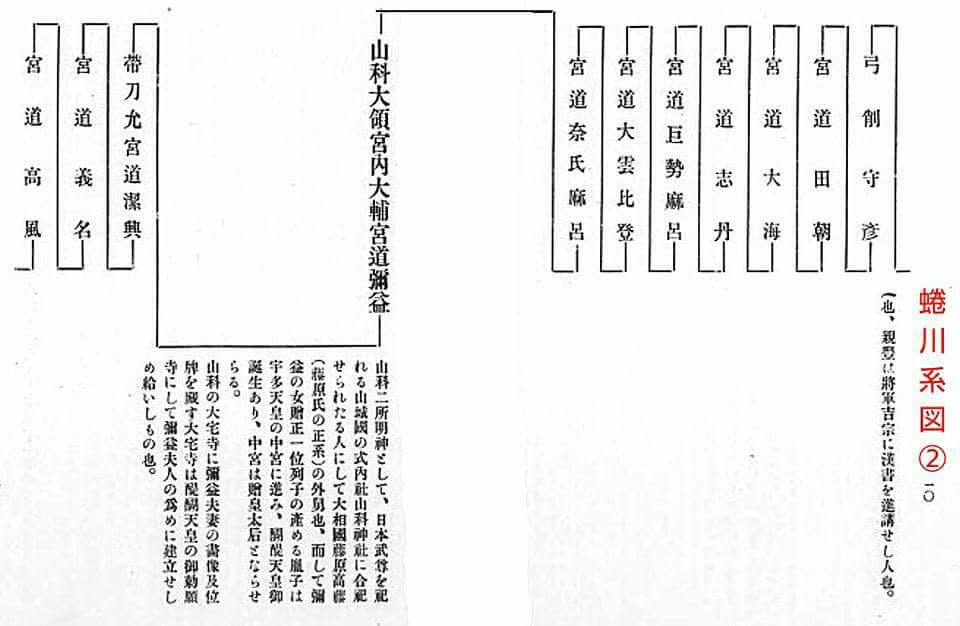 蜷川系図②
一〇
(也、親豐は將軍吉宗に漢書を進講せし人也。
弓削守彥
宮道田朝
宮道大海
宮道志丹
宮道巨勢麻呂
宮道大雲比登
宮道奈氐麻呂
山科大領宮內大輔宮道彌益
山科二所明神として、日本武尊を祀
れる山城國の式內社山科神社に合祀
せられたる人にして大相國藤原高藤
(藤原氏の正系)の外舅也、而して彌
益の女贈正一位列子の產める胤子は
宇多天皇の中宮に進み、醍醐天皇御
誕生あり、中宮は贈皇太后とならせ
らる。
山科の大宅寺に彌益夫妻の畫像及位
牌を殿す大宅寺は醍醐天皇の御勅願
寺にして彌益夫人の爲めに建立せし
め給いしもの也。
帶刀允宮道潔興
宮道義名
宮道高風